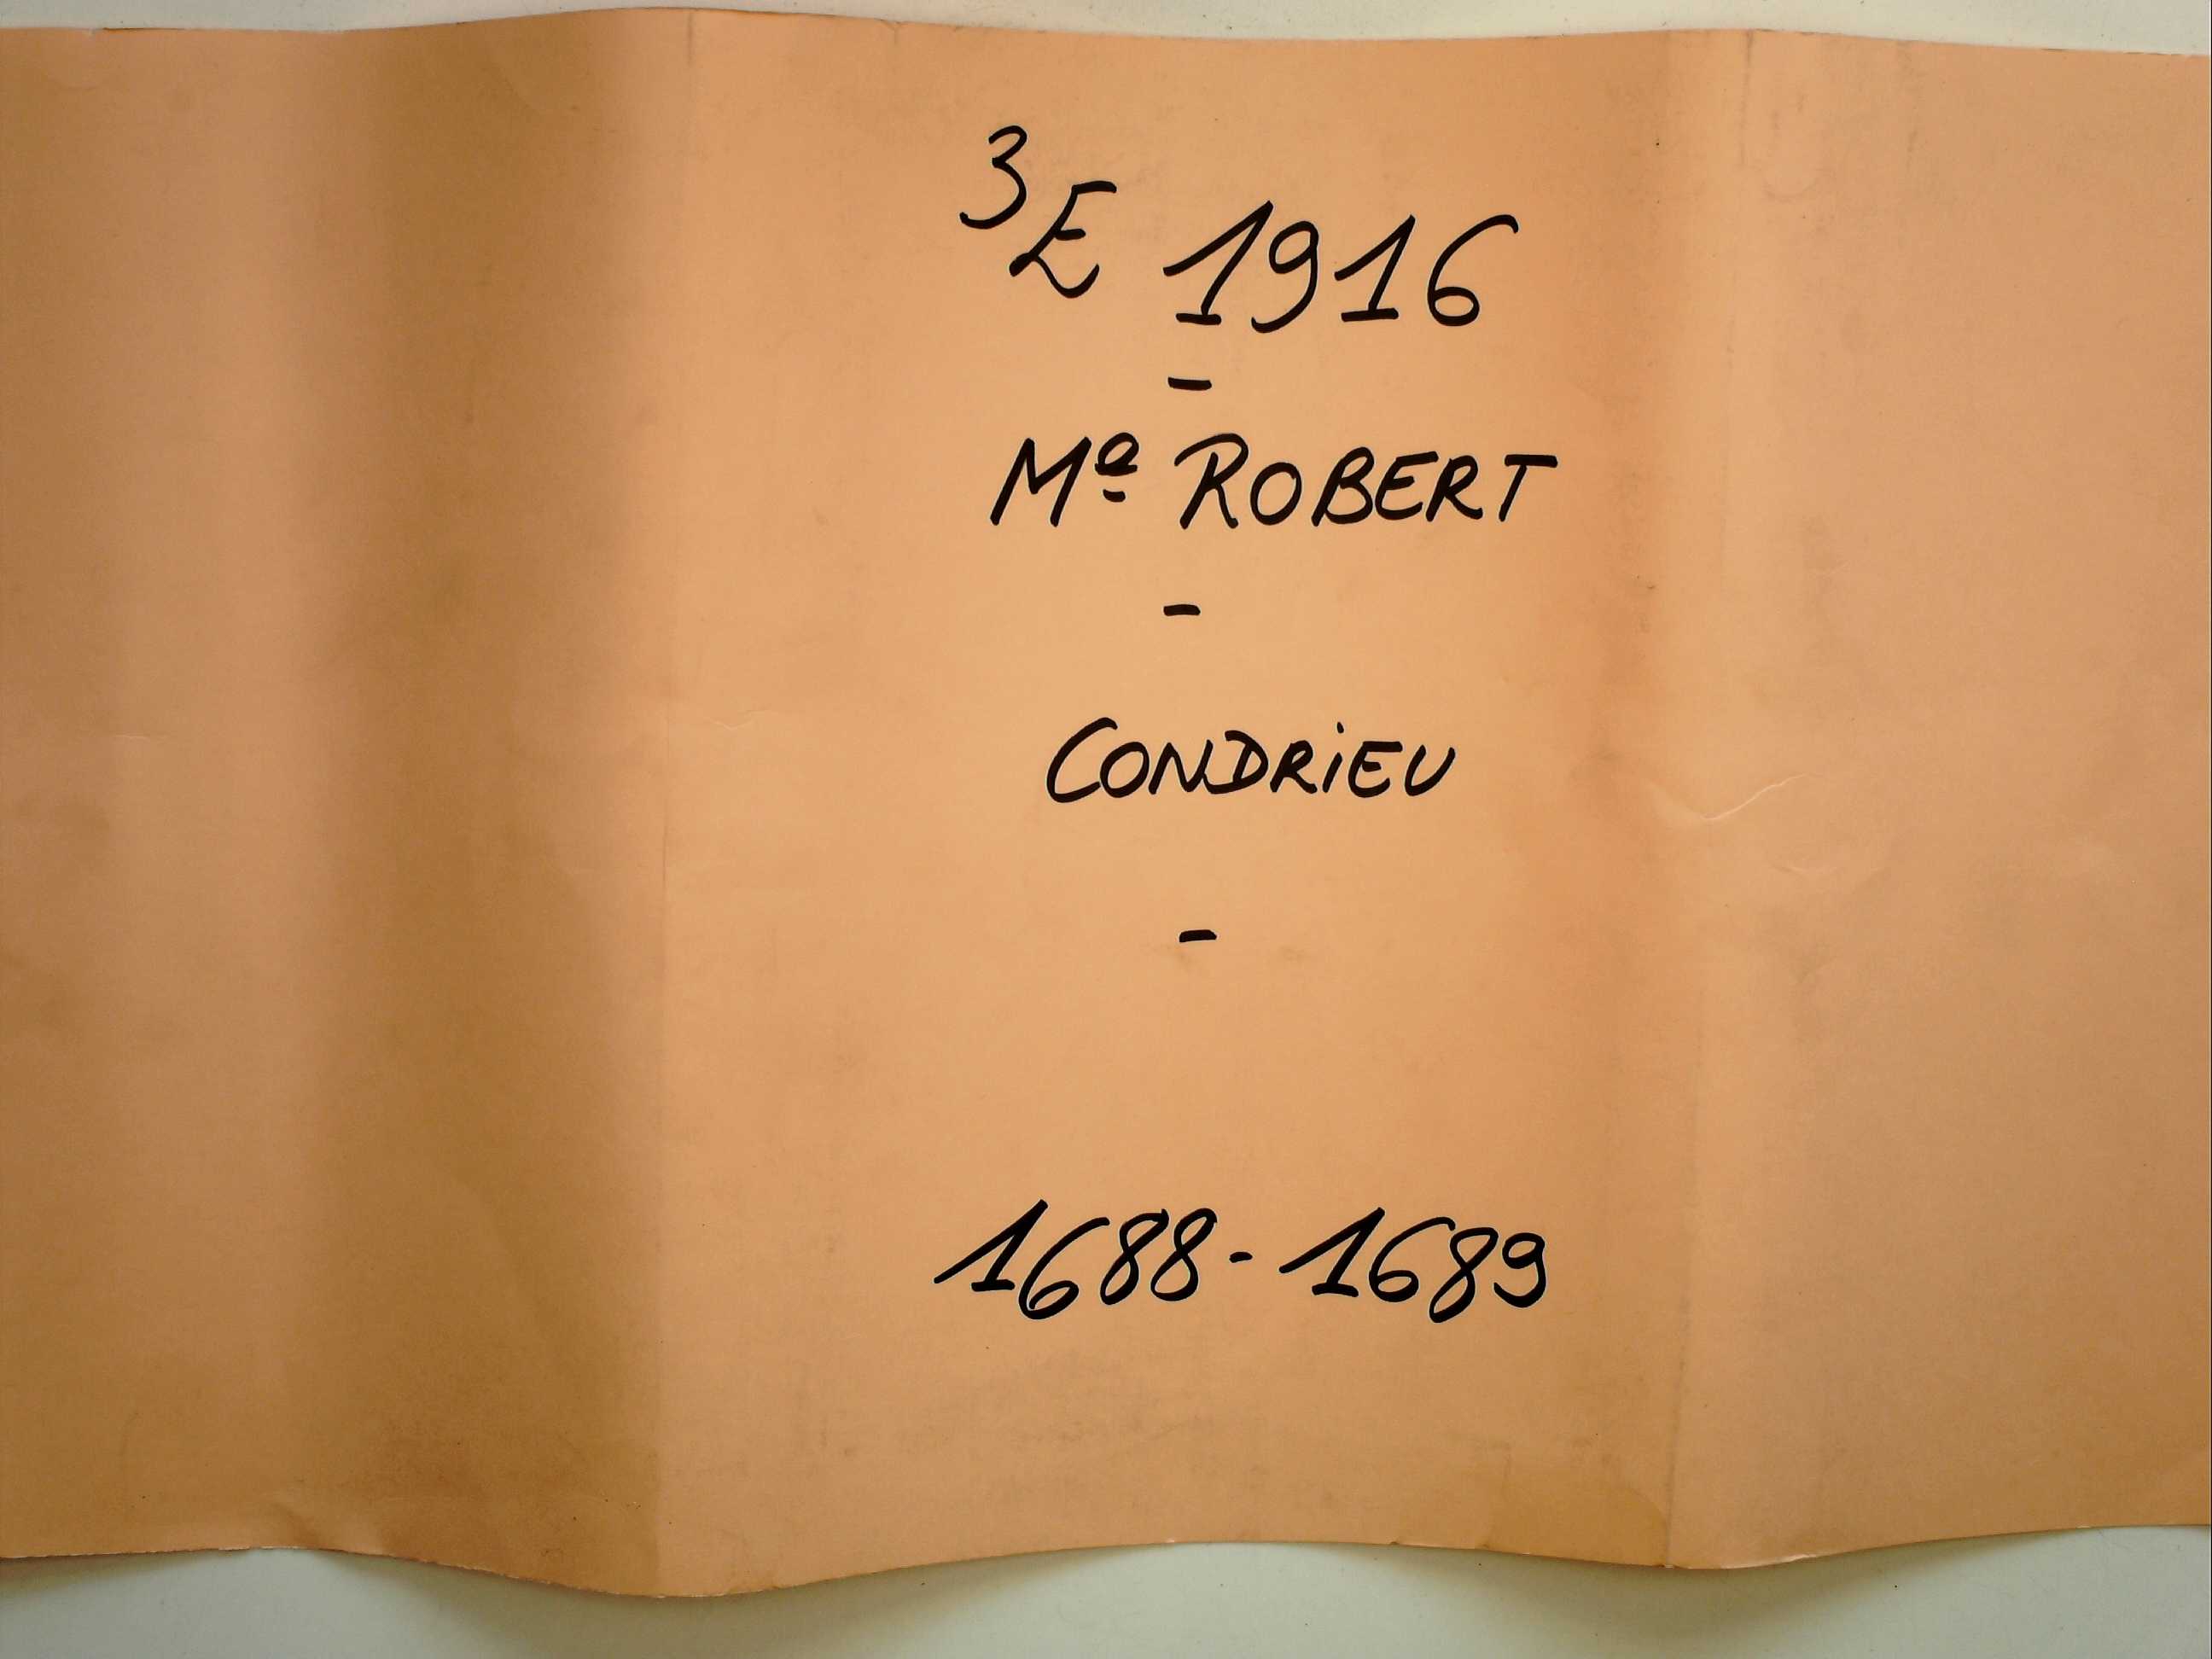 3E 1916
-
Me ROBERT
-
CONDRiEU
-
1688-1689